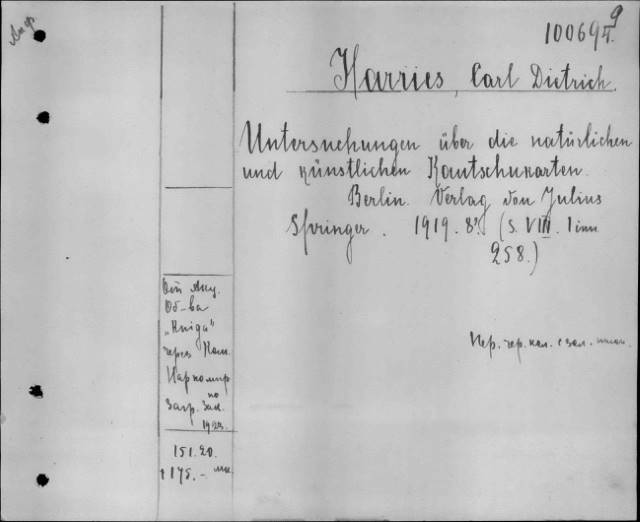 100694.
9
Harries, Carl Dietrich.
Untersuchungen über die natürlichen
und künstlichen Kautschukarten.
Berlin. Verlag von Julius
Springer. 1919. 8º. (S. VIII. 1 инн
258.)
От Акц.
Об-ва
„Книга"
через Ком.
Наркомпр
по
Загр. Зак.
1923.
Пер. чер. кол. с зол.
151.20.
175.-